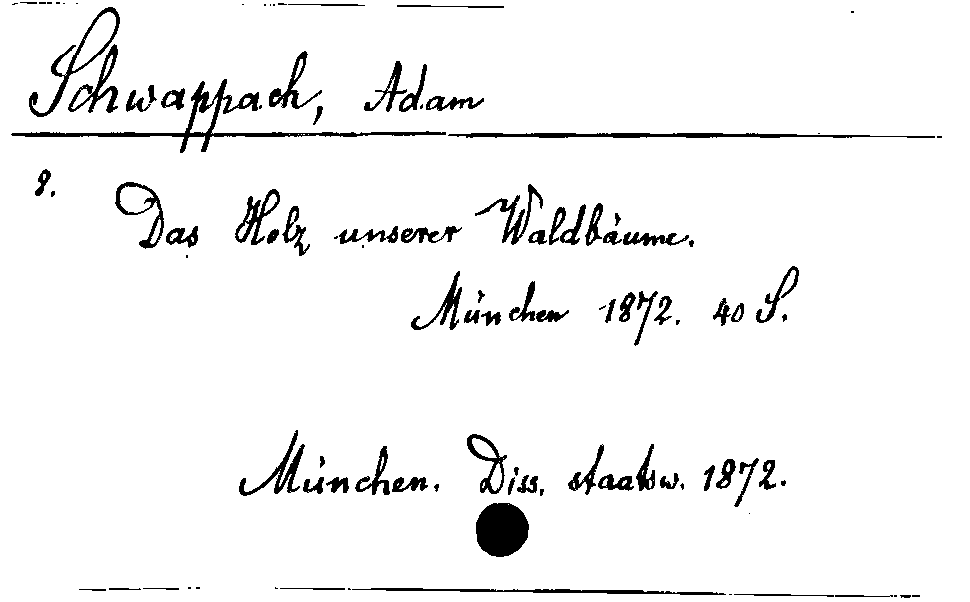 Schwappach, Adam
8.
Das Holz unserer Waldbäume.
München 1872. 40 S.
München. Diss. staatsw. 1872.